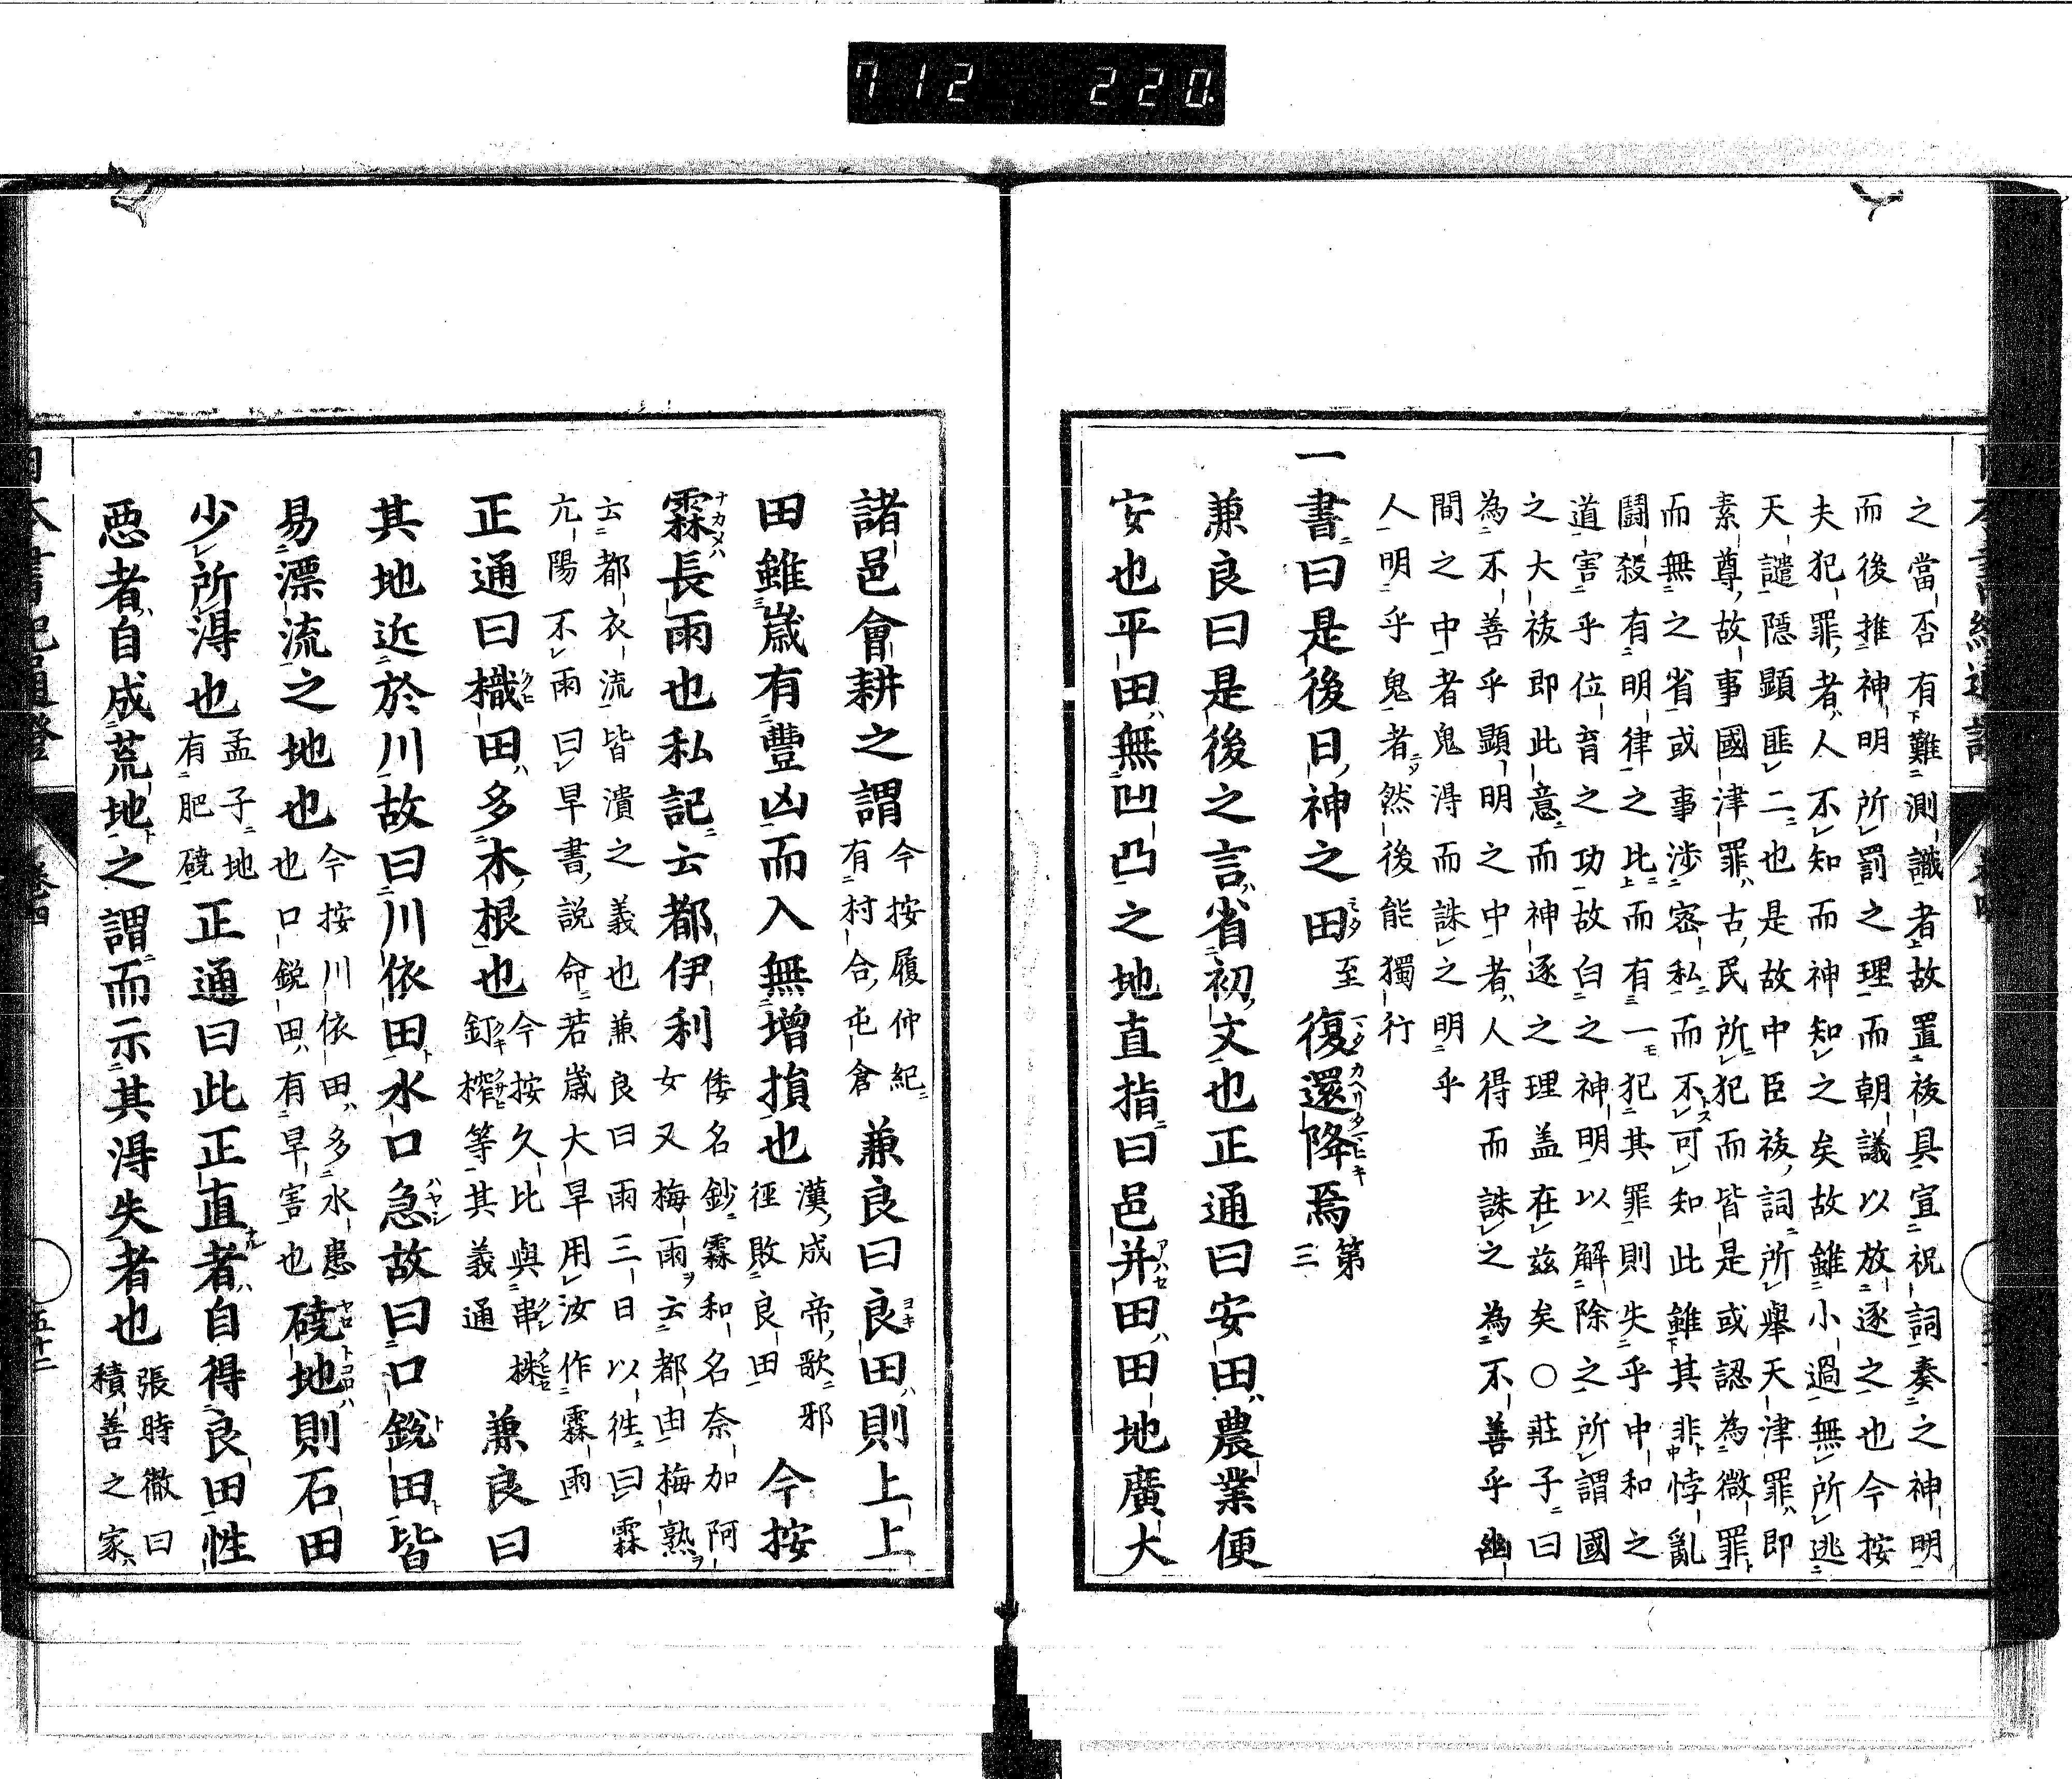 712 220
之當否有難測識者故置祓具宣祝詞奏之神明
而後推神明所罰之理而朝議以放逐之也今按
夫犯罪者人不知而神知之矣故雖小過無所逃
天譴隱顯匪二也是故中臣祓詞所舉天津罪即
素尊故事國津罪古民所犯而皆是或認為微罪
而無之省或事涉密私而不可知此雖其非悖亂
鬪殺有明律之比而有一犯其罪則失乎中和之
道害乎位育之功故白之神明以解除之所謂國
之大祓即此意而神逐之理盖在茲矣○莊子曰
為不善乎顯明之中者人得而誅之為不善乎幽
間之中者鬼得而誅之明乎
人明乎鬼者然後能獨行
一書曰是後日神之田至復還降焉第三
兼良曰是後之言省初文也正通曰安田農業便
安也平田無凹凸之地直指曰邑并田田地廣大
諸邑會耕之謂今按履仲紀有村合屯倉兼良曰良田則上上
田雖歲有豐凶而入無增損也漢成帝歌邪徑敗良田今按
霖長雨也私記云都伊利倭名鈔霖和名奈加阿女又梅雨云都由梅熟
云都衣流皆潰之義也兼良曰雨三日以徃曰霖
亢陽不雨曰旱書說命若歲大旱用汝作霖雨
正通曰樴田多木根也今按久比與串株釭榨等其義通兼良曰
其地近於川故曰川依田水口急故曰口銳田皆
易漂流之地也今按川依田多水患也口銳田有旱害也磽地則石田
少所得也孟子地有肥磽正通曰此正直者自得良田性
惡者自成荒地之謂而示其得失者也張時徹曰積善之家
卷四
五十二